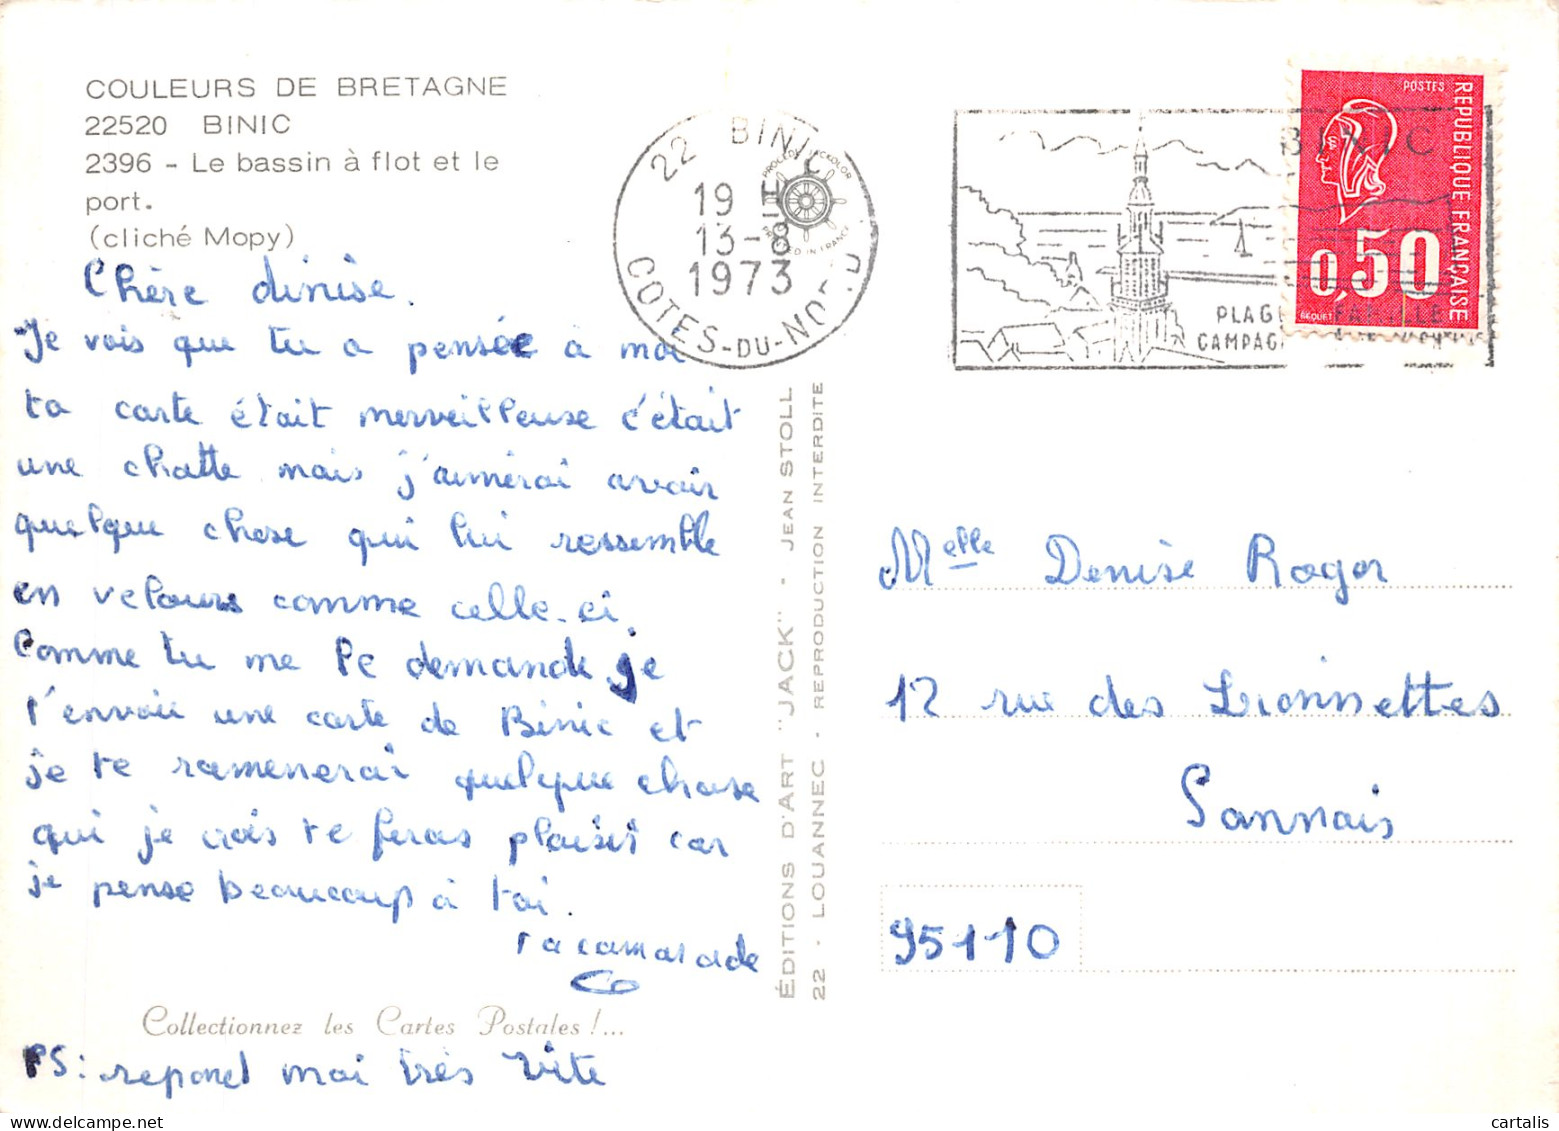 COULEURS DE BRETAGNE
22520 BINIC
2396 - Le bassin à flot et le
port.
(cliché Mopy)
Chère dinise.
Je vois que tu a pensée a moi
ta carte était merveilleuse c'était
une chatte mais j'aimerai avoir
quelque chose qui lui ressemble
en velours comme celle-ci.
Comme tu me le demande je
t'envoie une carte de Binic et
je te ramenerai quelque chose
qui je crois te feras plaisir car
je pense beaucoup à toi.
ta camarade
Co
Collectionnez les Cartes Postales !...
PS: repond moi très vite
ÉDITIONS D'ART "JACK" - JEAN STOLL
22 - LOUANNEC - REPRODUCTION INTERDITE
22 BINIC
19 H
13-8
1973
COTES-DU-NORD
PRINTED IN FRANCE
BINIC
PLAGE
CAMPAG
POSTES
REPUBLIQUE FRANÇAISE
0,50
BEQUET
Melle Denise Roger
12 rue des Lionnettes
Sannois
95110
cartalis